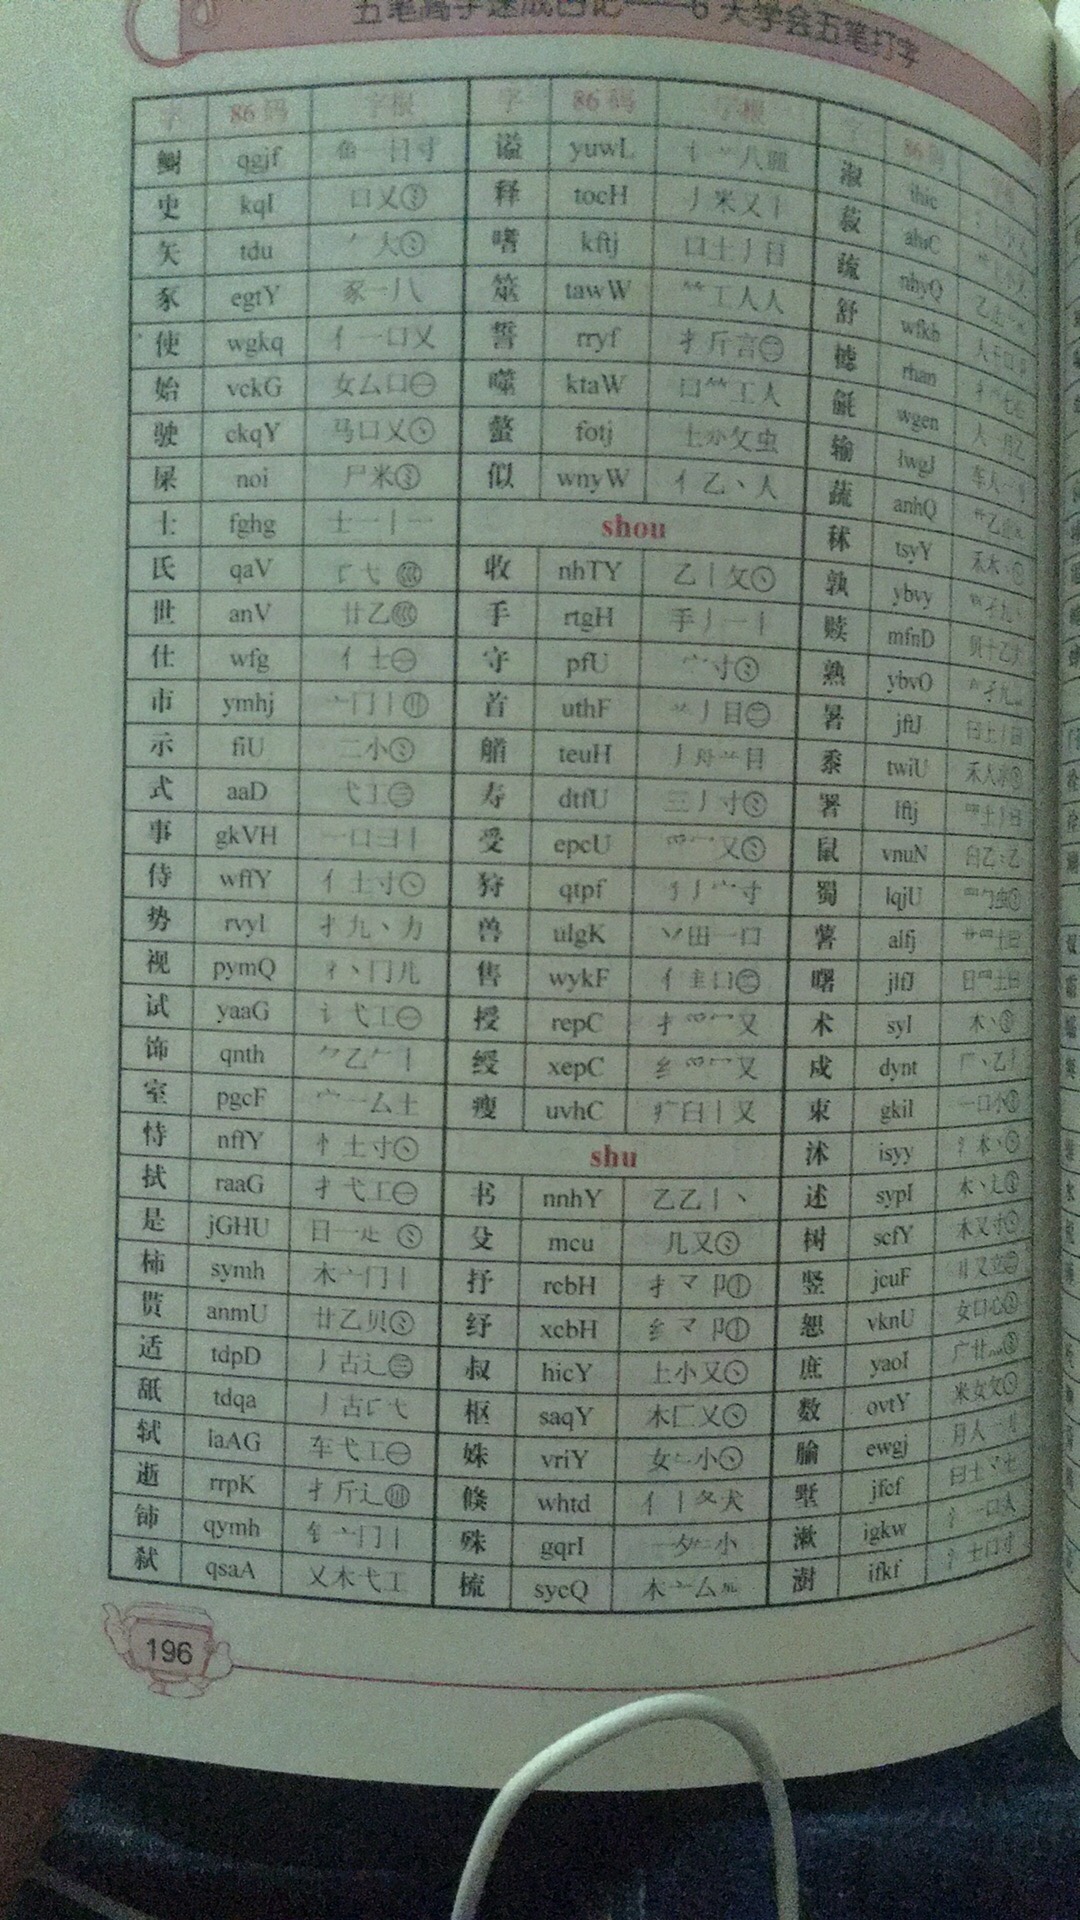 五笔高手速成日记——6 天学会五笔打字
字 86 码 字根
鲥 qgjf 鱼一日寸
史 kqI 口乂
矢 tdu 𠂉大
豕 egtY 豕一丿乀
使 wgkq 亻一口乂
始 vckG 女厶口㊀
驶 ckqY 马口乂
屎 noi 尸米
士 fghg 士一丨一
氏 qaV 弋
世 anV 廿乙
仕 wfg 亻士㊀
市 ymhj 亠冂丨
示 fiU 二小
式 aaD 弋工㊂
事 gkVH 一口彐丨
侍 wffY 亻土寸
势 rvyl 扌九丶力
视 pymQ 礻丶冂儿
试 yaaG 讠弋工㊀
饰 qnth 𠂊乙𠂉丨
室 pgcF 宀一厶土
恃 nffY 忄土寸
拭 raaG 扌弋工㊀
是 jGHU 日一龰
柿 symh 木亠冂丨
贳 anmU 廿乙贝
适 tdpD 丿古辶㊂
舐 tdqa 丿古弋
轼 laAG 车弋工㊀
逝 rrpK 扌斤辶
铈 qymh 钅亠冂丨
弑 qsaA 乂木弋工
字 86 码 字根
谥 yuwL 讠丷八皿
释 tocH 丿米又丨
嗜 kftj 口土丿日
筮 tawW 𥫗工人人
誓 rryf 扌斤言㊁
噬 ktaW 口𥫗工人
螫 fotj 土攵虫
似 wnyW 亻乙丶人
shou
收 nhTY 乙丨攵
手 rtgH 手丿一丨
守 pfU 宀寸
首 uthF 䒑丿目㊁
艏 teuH 丿舟䒑目
寿 dtfU 三丿寸
受 epcU 爫冖又
狩 qtpf 犭丿宀寸
兽 ulgK 丷田一口
售 wykF 亻圭口㊁
授 repC 扌爫冖又
绶 xepC 纟爫冖又
瘦 uvhC 疒臼丨又
shu
书 nnhY 乙乙丨丶
殳 mcu 几又
抒 rcbH 扌龴卩
纾 xcbH 纟龴卩
叔 hicY 上小又
枢 saqY 木匚乂
姝 vriY 女𠂒小
倏 whtd 亻丨夂犬
殊 gqrI 一夕𠂒小
梳 sycQ 木亠厶
字 86 码
淑 ihic
菽 ahiC
疏 nhyQ
舒 wfkb
摅 rhan
毹 wgen
输 lwgJ
蔬 anhQ
秫 tsyY
孰 ybvy
赎 mfnD 贝十乙大
熟 ybvO
暑 jftJ 日土丿日
黍 twiU 禾人氺
署 lftj 罒土丿日
鼠 vnuN 臼乙冫乙
蜀 lqjU 罒勹虫
薯 alfj 艹罒土日
曙 jlfJ 日罒土日
术 syI 木丶
戍 dynt 厂丶乙丿
束 gkiI 一口小
沭 isyy 氵木丶
述 sypI 木丶辶
树 scfY 木又寸
竖 jcuF 刂又立㊁
恕 vknU 女口心
庶 yaoI 广廿灬
数 ovtY 米女攵
腧 ewgj 月人一刂
墅 jfcf 日土龴土
漱 igkw 氵一口人
澍 ifkf 氵士口寸
196